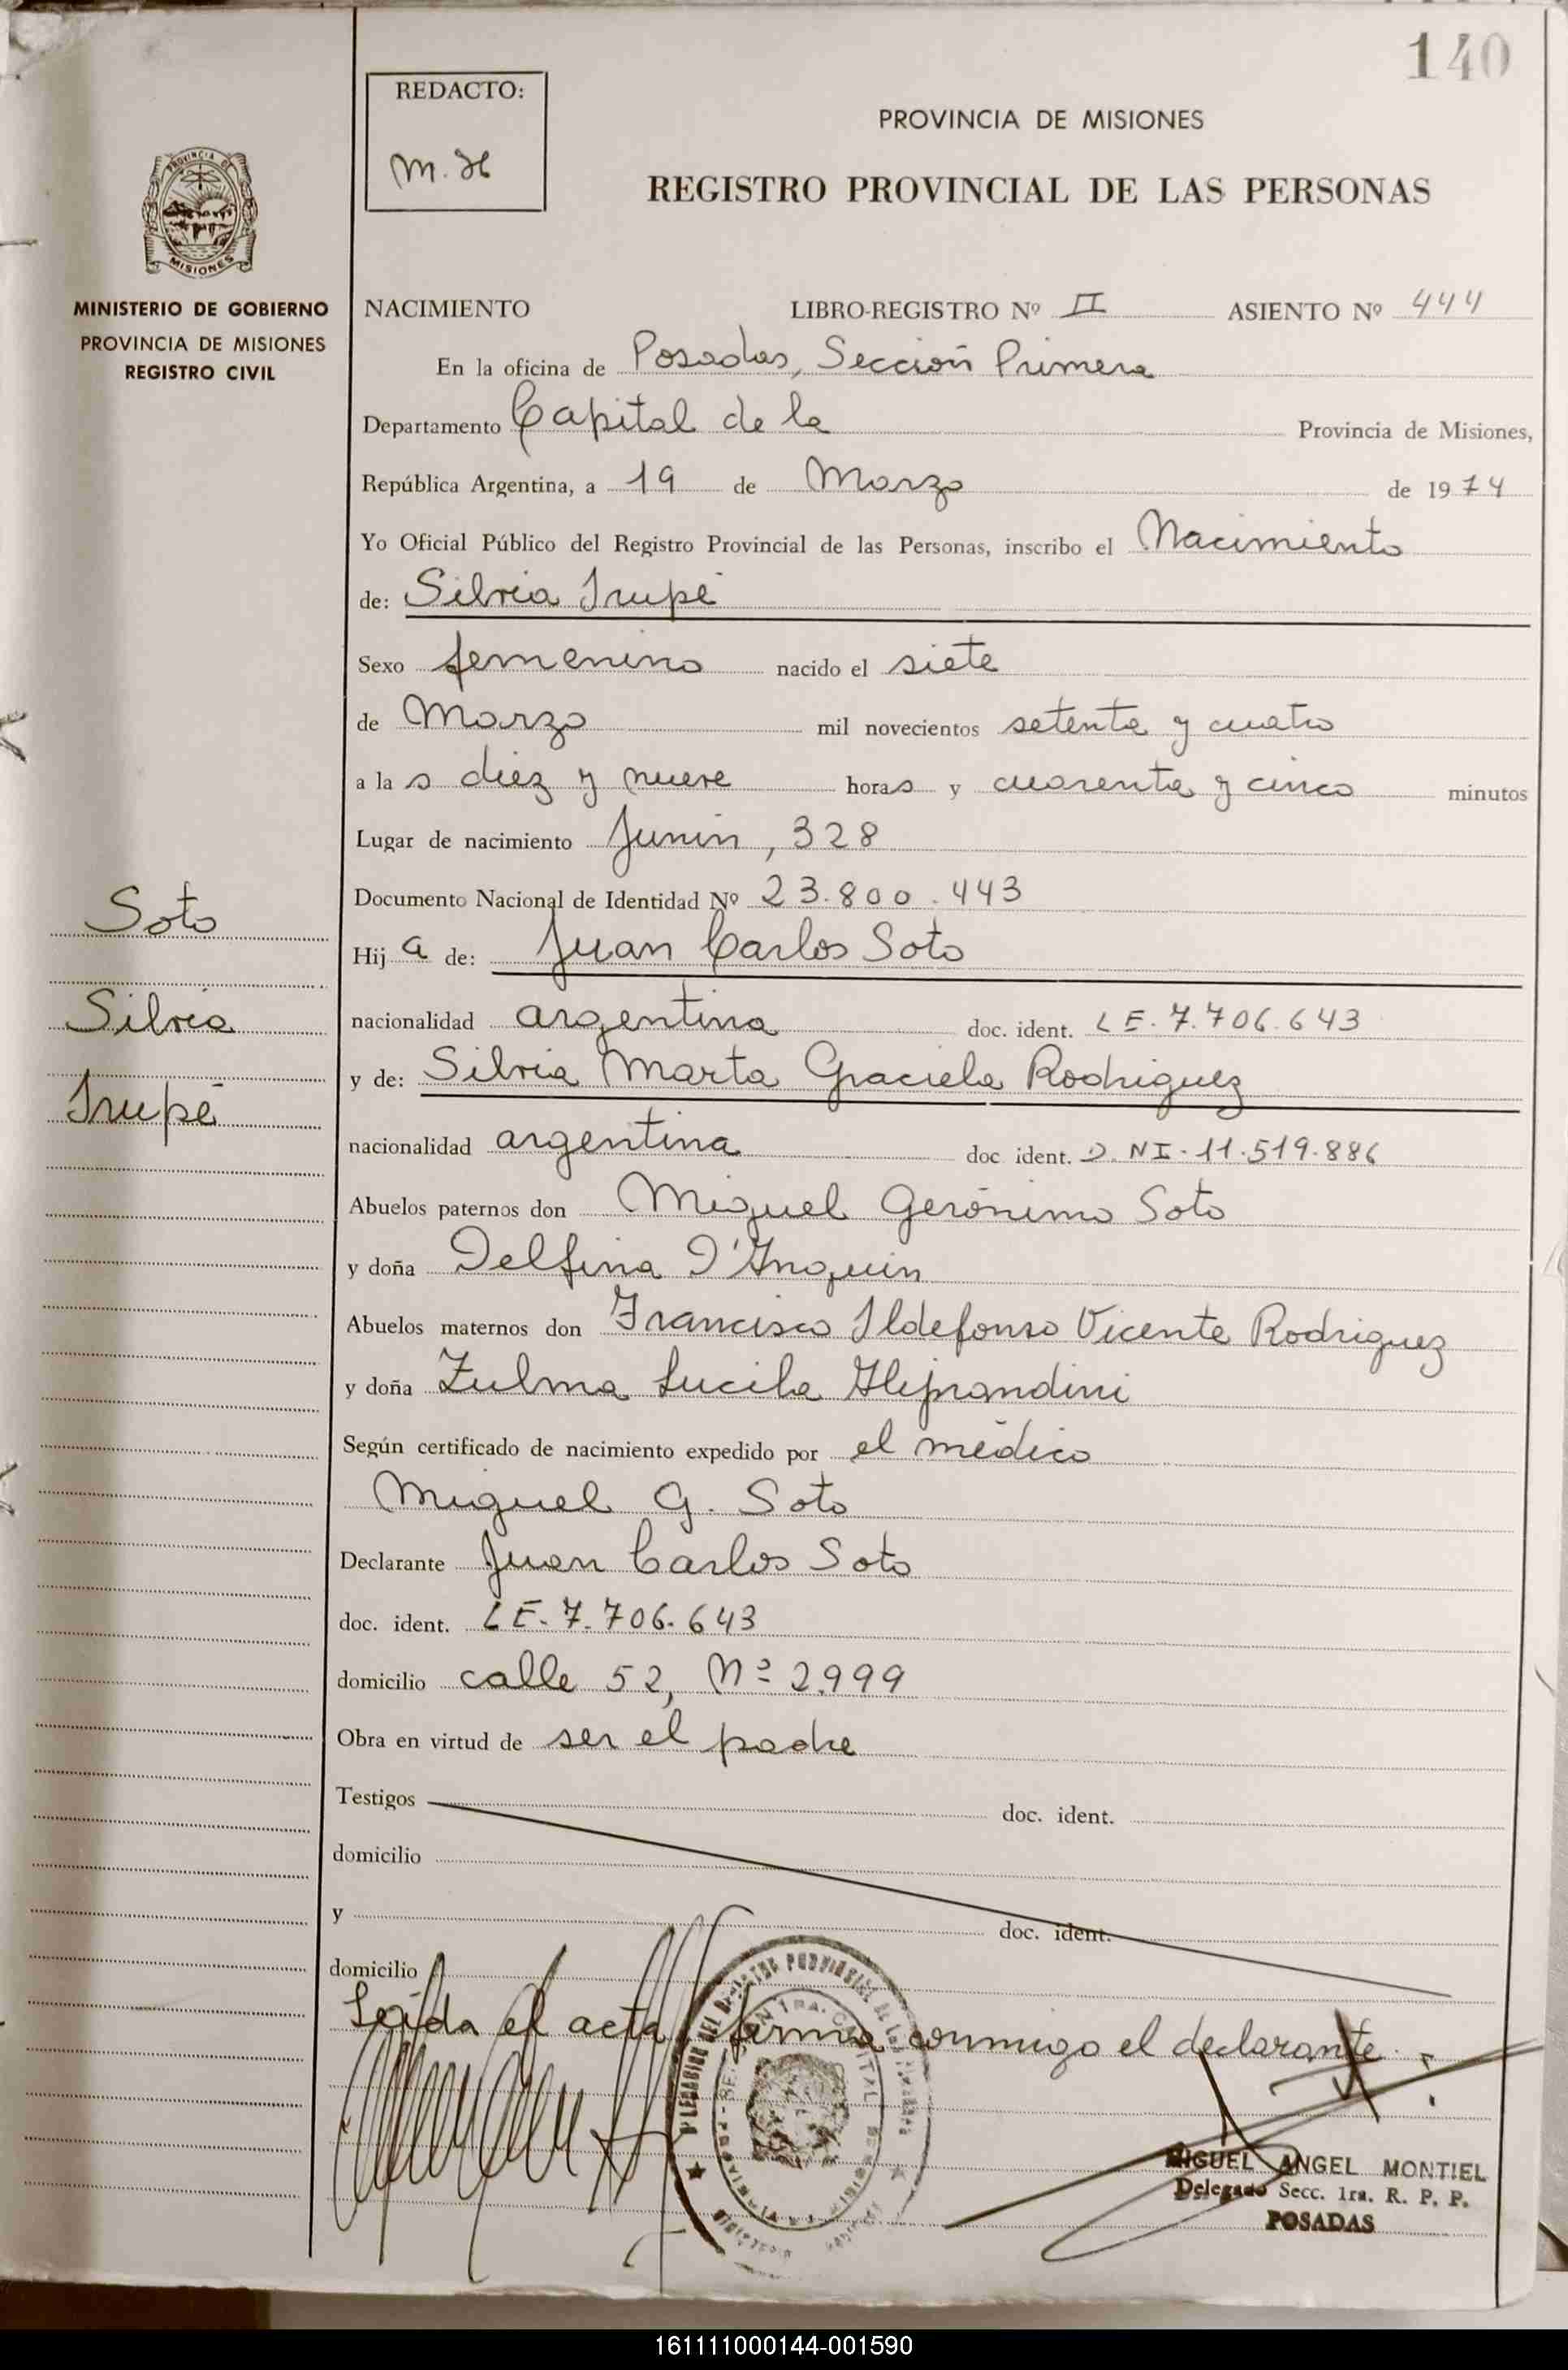 140
REDACTO:
M. H
PROVINCIA DE MISIONES
REGISTRO PROVINCIAL DE LAS PERSONAS
PROVINCIA DE
MISIONES
MINISTERIO DE GOBIERNO
PROVINCIA DE MISIONES
REGISTRO CIVIL
NACIMIENTO LIBRO-REGISTRO Nº II ASIENTO Nº 444
En la oficina de Posadas, Sección Primera
Departamento Capital de la Provincia de Misiones,
República Argentina, a 19 de Marzo de 1974
Yo Oficial Público del Registro Provincial de las Personas, inscribo el Nacimiento
de: Silvia Irupé
Sexo femenino nacido el siete
de Marzo mil novecientos setenta y cuatro
a las diez y nueve horas y cuarenta y cinco minutos
Lugar de nacimiento Junín, 328
Documento Nacional de Identidad Nº 23.800.443
Hija de: Juan Carlos Soto
nacionalidad argentina doc. ident. LE. 7.706.643
y de: Silvia Marta Graciela Rodriguez
nacionalidad argentina doc ident. D.NI. 11.519.886
Abuelos paternos don Miguel Gerónimo Soto
y doña Delfina
Abuelos maternos don Francisco Ildefonso Vicente Rodriguez
y doña Zulma Lucila
Según certificado de nacimiento expedido por el médico
Miguel G. Soto
Declarante Juan Carlos Soto
doc. ident. LE. 7.706.643
domicilio calle 52, Nº 2.999
Obra en virtud de ser el padre
Testigos doc. ident.
domicilio
y doc. ident.
domicilio
Leída el acta firma conmigo el declarante.
Soto
Silvia
Irupé
MIGUEL ANGEL MONTIEL
Delegado Secc. 1ra. R. P. P.
POSADAS
161111000144-001590